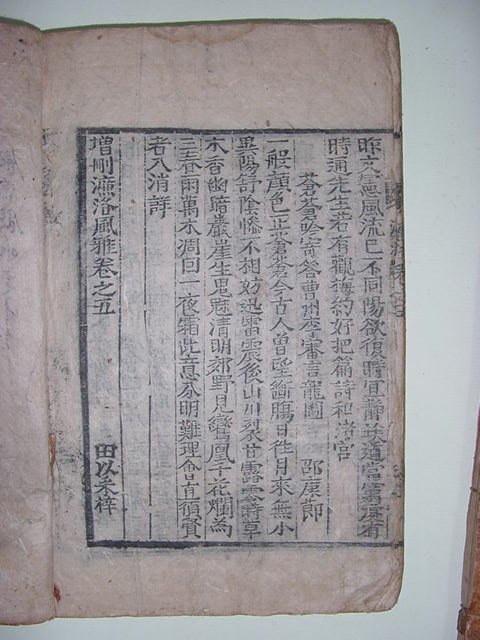 昨文憲風流已不同陽欲復時宜靜養道當窮處有
時通先生若有觀梅約好把篇詩和渚宮
蒼蒼吟寄答曹州李審言龍圖　邵康節
一般顔色正蒼蒼今古人曾望斷腸日往月來無小
異陽舒陰慘不相妨迅雷震後山川裂甘露零時草
木香幽暗巖崖生鬼魅清明郊野見鸞鳳千花爛爲
三春雨萬木凋因一夜霜此意分明難理會直須賢
者入消詳
增刪濂洛風雅卷之五
田以采梓